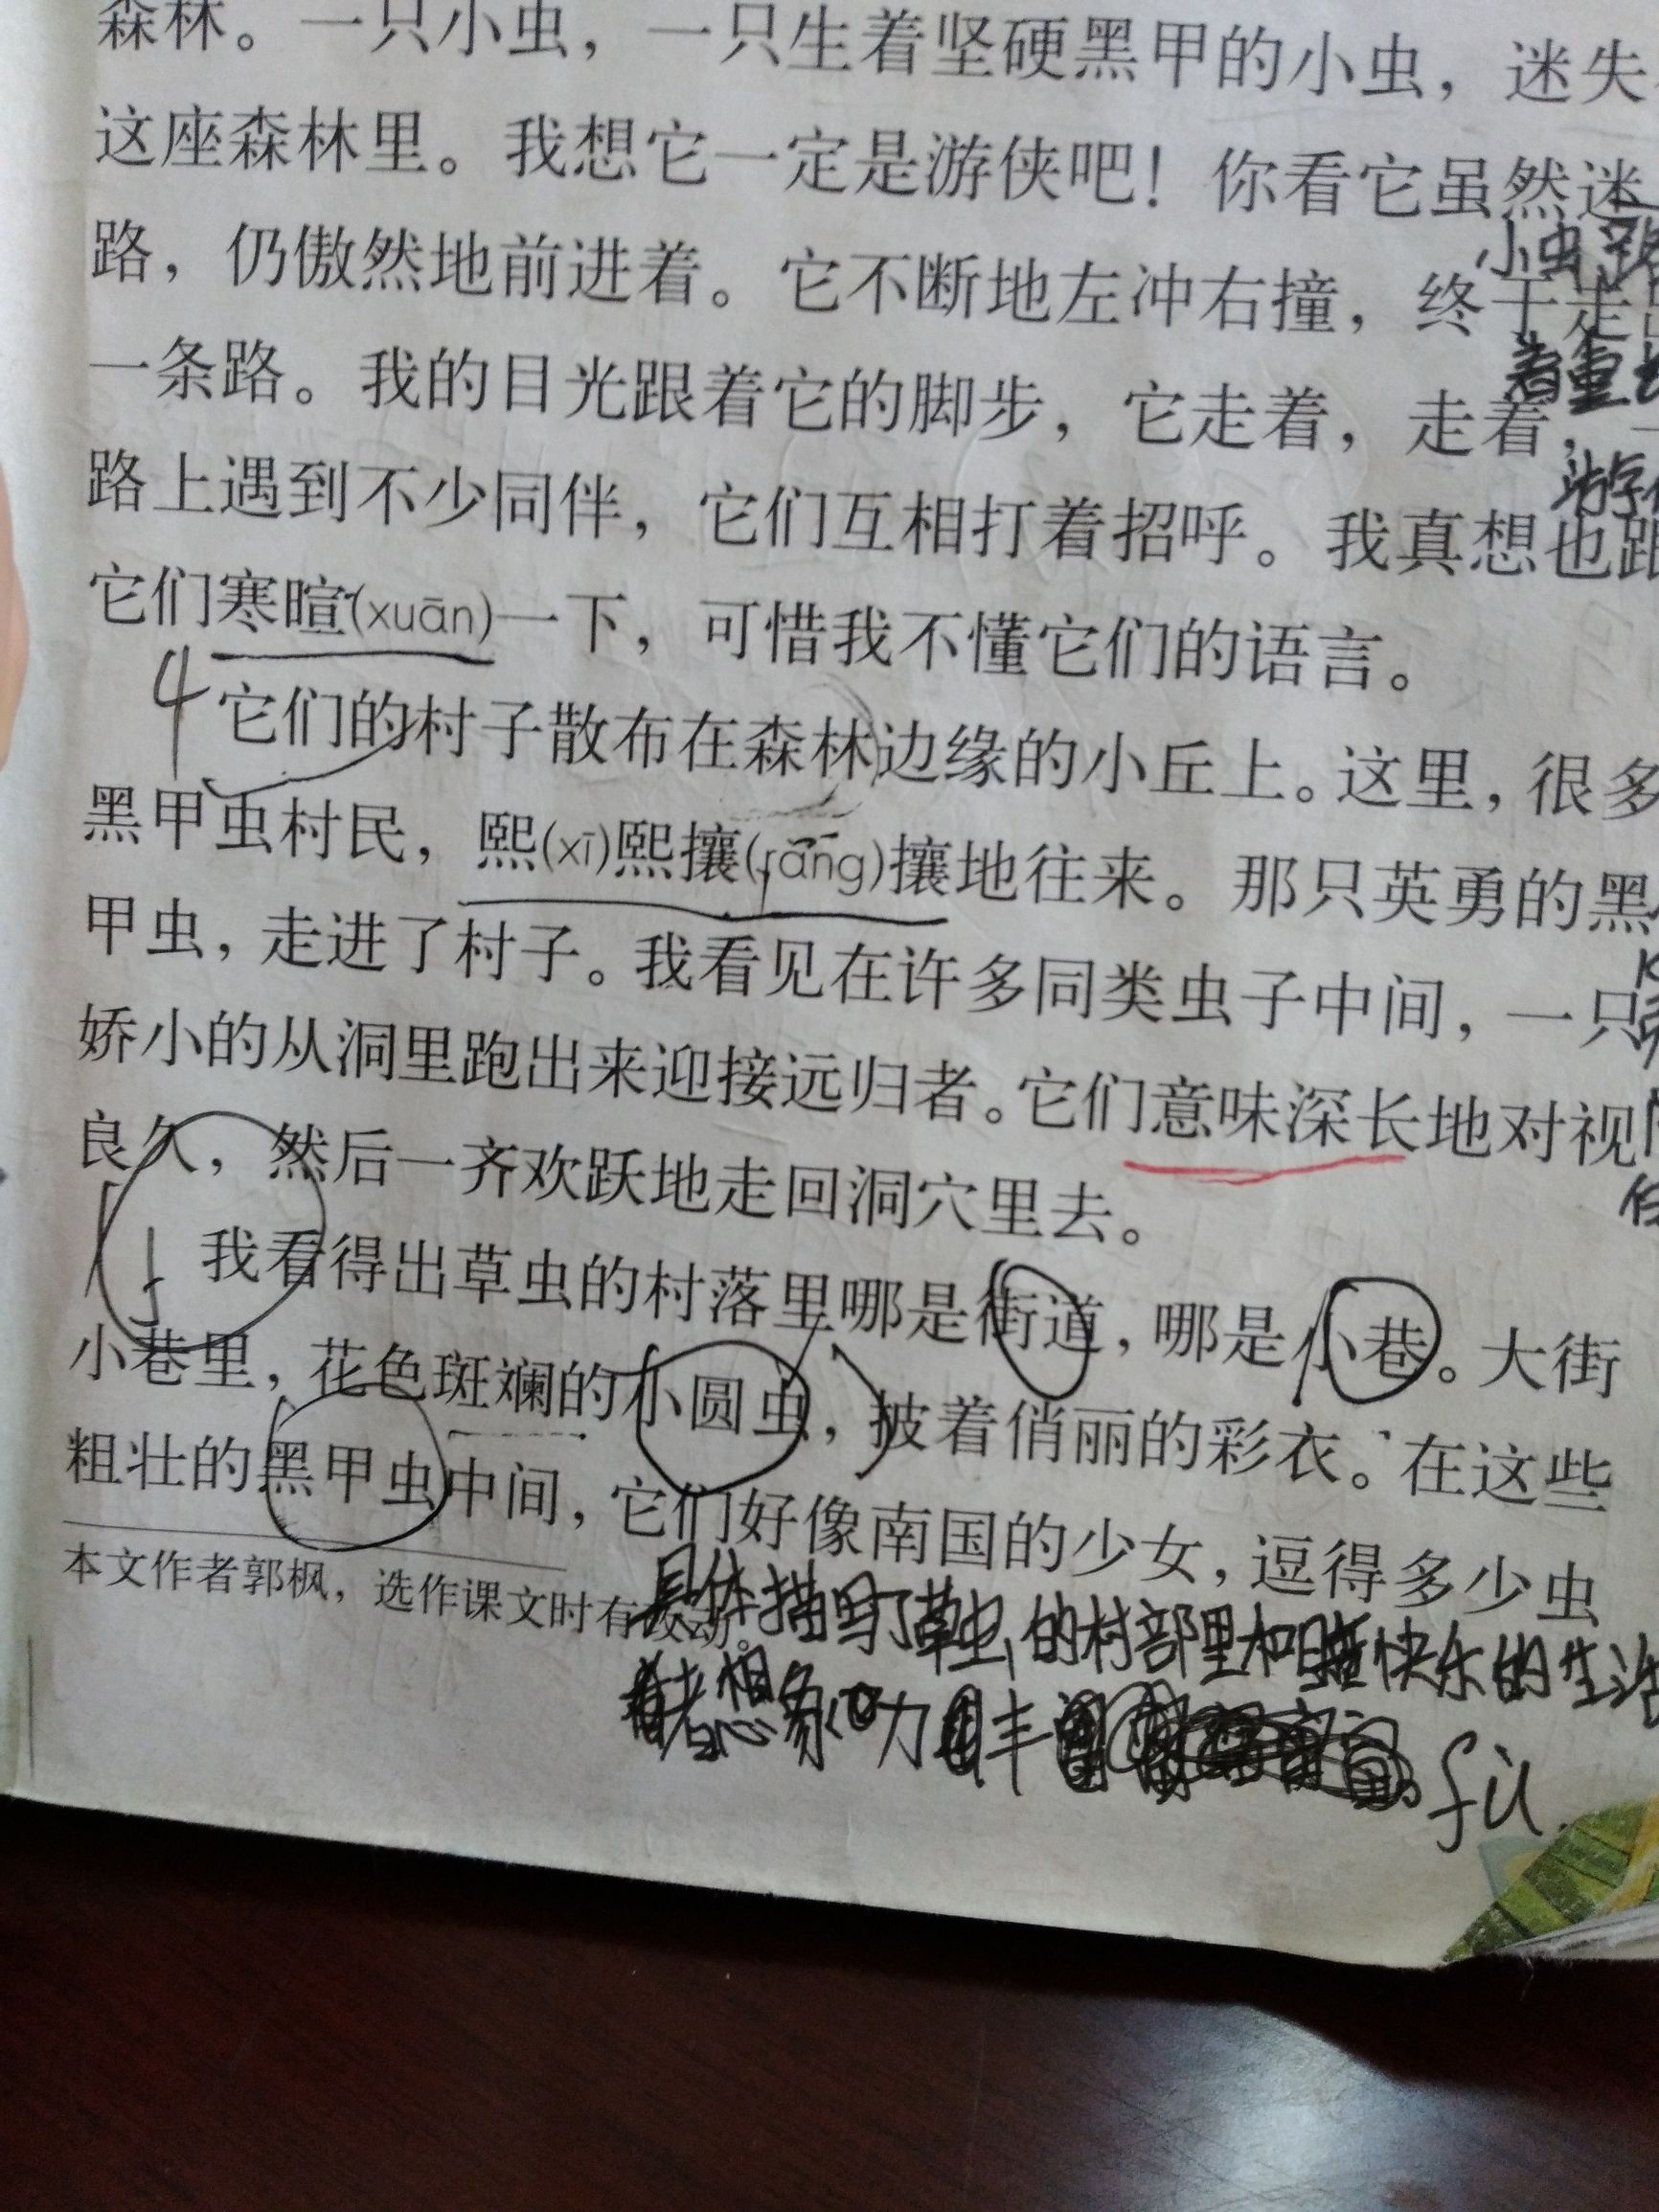 森林。一只小虫，一只生着坚硬黑甲的小虫，迷失
这座森林里。我想它一定是游侠吧！你看它虽然迷
小虫
路，仍傲然地前进着。它不断地左冲右撞，终于走出
着重
一条路。我的目光跟着它的脚步，它走着，走着，一
路上遇到不少同伴，它们互相打着招呼。我真想也跟
它们寒暄(xuān)一下，可惜我不懂它们的语言。
4 它们的村子散布在森林边缘的小丘上。这里，很多
黑甲虫村民，熙(xī)熙攘(rǎng)攘地往来。那只英勇的黑
甲虫，走进了村子。我看见在许多同类虫子中间，一只
娇小的从洞里跑出来迎接远归者。它们意味深长地对视
良久，然后一齐欢跃地走回洞穴里去。
我看得出草虫的村落里哪是街道，哪是小巷。大街
小巷里，花色斑斓的小圆虫，披着俏丽的彩衣。在这些
粗壮的黑甲虫中间，它们好像南国的少女，逗得多少虫
本文作者郭枫，选作课文时有改动。
具体描写了草虫的村部里和睦快乐的生活
想象力丰 fù